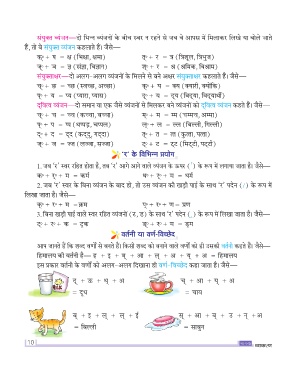 संयुक्त व्यंजन—दो भिन्न व्यंजनों के बीच स्वर न रहने से जब वे आपस में मिलाकर लिखे या बोले जाते
हैं, तो ये संयुक्त व्यंजन कहलाते हैं। जैसे—
क् + ष = क्ष (भिक्षा, क्षमा) त् + र = त्र (त्रिशूल, त्रिभुज)
ज् + ञ = ज्ञ (संज्ञा, विज्ञान) श् + र = श्र (श्रमिक, विश्राम)
संयुक्ताक्षर—दो अलग-अलग व्यंजनों के मिलने से बने अक्षर संयुक्ताक्षर कहलाते हैं। जैसे—
च् + छ = च्छ (स्वच्छ, अच्छा) क् + य = क्य (क्यारी, क्योंकि)
प् + य = प्य (प्यार, प्यास) द् + य = द्य (विद्युत, विद्यार्थी)
द्वित्व व्यंजन—दो समान या एक जैसे व्यंजनों से मिलकर बने व्यंजनों को द्वित्व व्यंजन कहते हैं। जैसे—
च् + च = च्च (कच्चा, बच्चा) म् + म = म्म (चम्मच, अम्मा)
प् + प = प्प (थप्पड़, चप्पल) ल् + ल = ल्ल (बिल्ली, गिल्ली)
द् + द = द्द (कद्दू, गद्दा) त् + त = त्त (कुत्ता, पत्ता)
ज् + ज = ज्ज (लज्जा, सज्जा) ट् + ट = ट्ट (मिट्टी, पट्टी)
'र' के विभिन्न प्रयोग
1. जब 'र' स्वर रहित होता है, तब 'र' आगे आने वाले व्यंजन के ऊपर ( ́ ) के रूप में लगाया जाता है। जैसे—
क + र् + म = कर्म ध + र् + म = धर्म
2. जब 'र' स्वर के बिना व्यंजन के बाद हो, तो उस व्यंजन की खड़ी पाई के साथ 'र' पदेन ( ⸝ ) के रूप में
लिखा जाता है। जैसे—
क् + र + म = क्रम प् + र + ण = प्रण
3. बिना खड़ी पाई वाले स्वर रहित व्यंजनों (ट्, ड्) के साथ 'र' पदेन ( ‸ ) के रूप में लिखा जाता है। जैसे—
ट् + र + क = ट्रक ड् + र + म = ड्रम
वर्तनी या वर्ण-विच्छेद
आप जानते हैं कि शब्द वर्णों से बनते हैं। किसी शब्द को बनाने वाले वर्णों को ही उसकी वर्तनी कहते हैं। जैसे—
हिमालय की वर्तनी है— ह् + इ + म् + आ + ल् + अ + य् + अ = हिमालय
इस प्रकार वर्तनी के वर्णों को अलग-अलग दिखाना ही वर्ण-विच्छेद कहा जाता है। जैसे—
द् + ऊ + ध् + अ च् + आ + य् + अ
= दूध = चाय
ब् + इ + ल् + ल् + ई स् + आ + ब् + उ + न् + अ
= बिल्ली = साबुन
10